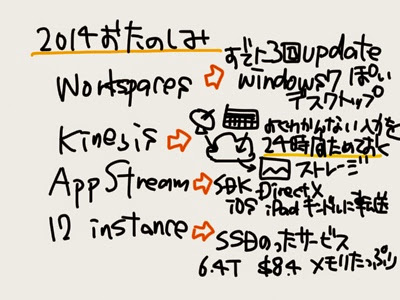 2014おたのしみ
すでに3回update
Workspares
windows7ぽい
デスクトップ
Kinesis
よくわかんない入力を
24時間ためておく
ストレージ
AppStream
SDK DirectX
iOS iPad キンドルに転送
I2 instance
SSDのったサービス
6.4T $8.4 メモリたっぷり